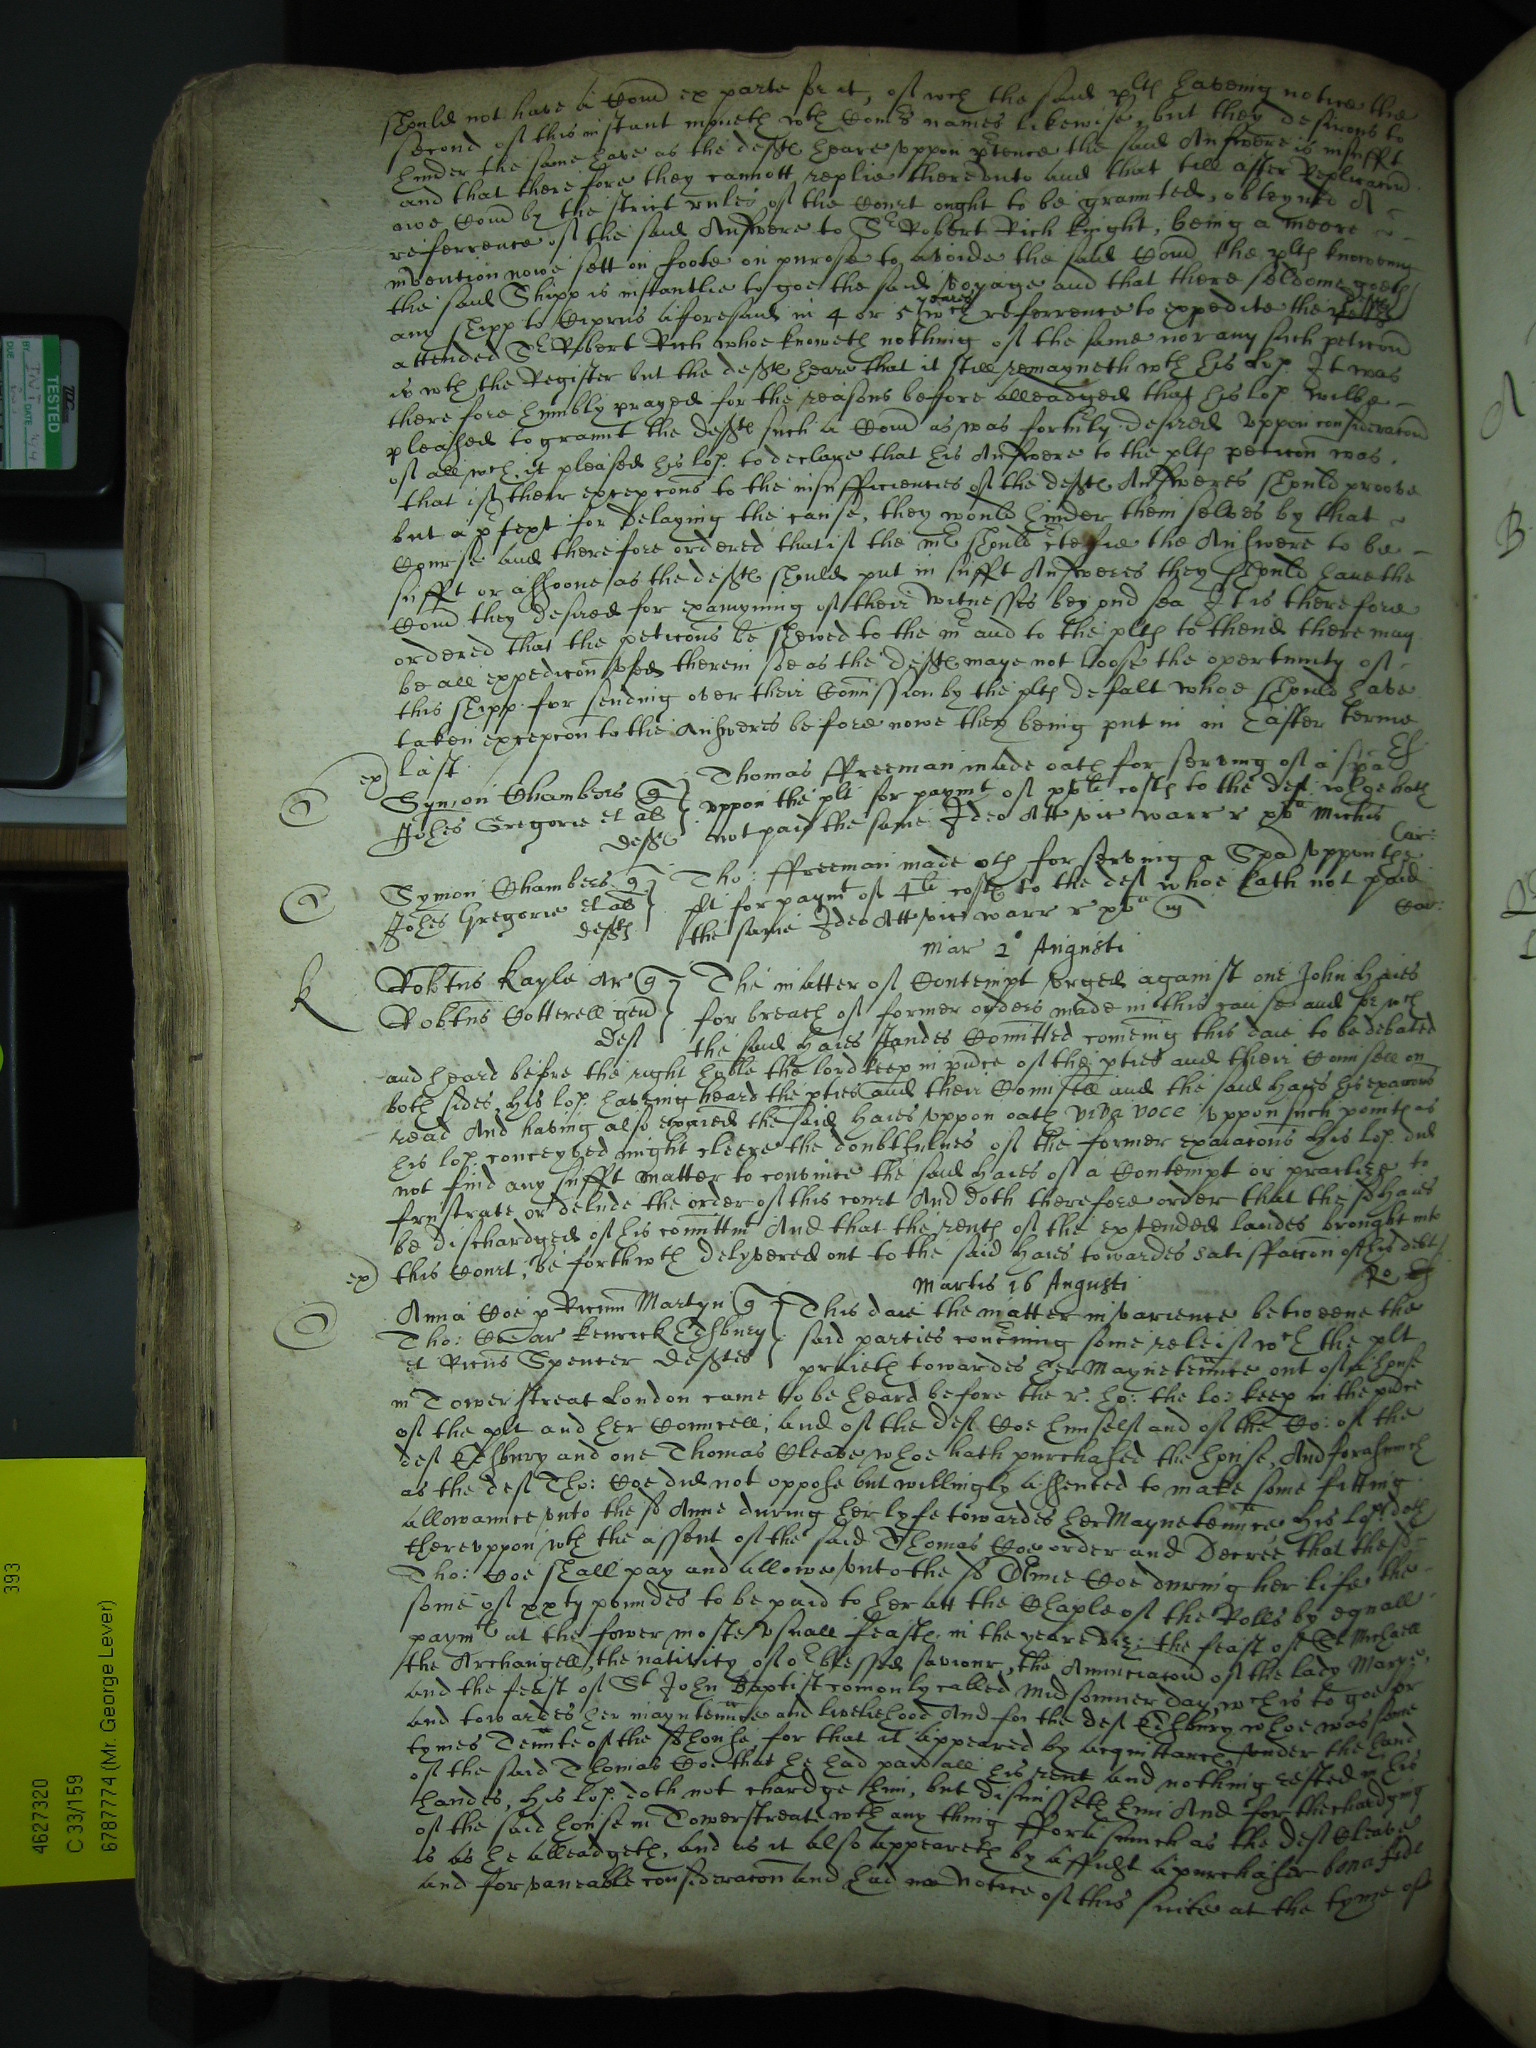 should not have a Com̃ ex parte for it, of wch the said plts haveing notice the
second of this instant moneth wth Com̃rs names likewise, but they desirous to
hinder the same have as the defts heare uppon ptence the said Answere is insufft
and that therefore they cannott replie thereunto and that till after Replicacon
noe Com̃ by the strict rules of the Court ought to be graunted, obteyned A
reference of the said Answere to Sr Robert Rich knight, being a meere
invention nowe sett on foote on purpose to avoide the said Com̃ the plts knoweing
the said Shipp is instantlie to goe the said voyage and that there seldome goeth
any shipp to Ciprus aforesaid in 4 or 5 yeares wch referrence to expedite the defts
attended Sr Robert Rich whoe knoweth nothing of the same nor any such peticon
is wth the Register but the defts heare that it still remayneth wth his Lop. It was
therefore humbly prayed for the reasons before alleadged that his lop wilbe
pleased to graunt the defts such a Com̃ as was formily desired Uppon consideracon
of all wch it pleased his lop. to declare that his Answere to the plts peticon was,
that if their excepcons to the insufficiencies of the defts Answeres should proove
but a ptext for delaying the cause, they would hinder themselves by that
Course and therefore ordered that if the mr should certefie the Answere to be
sufft or assoone as the defts should put in sufft Answeres they should have the
Com̃ they desired for examyning of their witnesses beyond sea It is therefore
ordered that the peticons be shewed to the mr and to the plts to thend there may
be all expedicon used therein soe as the defts maye not loose the opertunity of
this shipp for sending over their Comission by the plts defalt whoe should have
taken excepcon to the Answeres before nowe they being put in in Easter terme
last.
ex
C
Symon Chambers q
Johes Gregorie et al
defts
Thomas ffreeman made oath for serving of a spa
uppon the plt for paymt of costs to the def: whoe hath
not paid the same Ideo Att vic warr r Michis
C
Symon Chambers q
Johes Gregorie et al
defts
Tho: ffreeman made oth for serving a Spa uppon the
plt for paymt of 4li costs to the def whoe hath not paid
the same Ideo Att vic warr r
Mar 2o Augusti
K
Robtus Kayle Ar q
Robtus Cotterell gen
Def
The matter of Contempt urged against one John Haies
for breach of former orders made in this cause and for wch
the said Haies standes Comitted comeing this daie to be debated
and heard before the right hoble the lord keep in pnce of the pties and their Counsell on
both sides, His lop. having heard the pties and their Counsell and the said Haies his exacons
read And having also exaied the said Haies uppon oath viva voce uppon such points as
his lop. conceyved might cleere the doubtfulnes of the former exaiacons His lop. did
not find any sufft matter to convince the said Haies of a Contempt or practize to
frustrate or delude the order of this court And doth therefore order that the sd Haies
be dischardged of his comittmt And that the rents of the extended landes brought into
this Court, be forthwth delyvered out to the said Haies towardes satisfaccon of his debt
ex
Martis 16 Augusti
C
Anna Coe p Ricum Martyn q
Tho: Coe Ar Kenrick Edsbury
et Ricus Spencer Deftes
This daie the matter in varience betweene the
said parties concerning some releif wch the plt
praieth towardes her Maynetennce out of a house
in Towerstreat London came to be heard before the r. ho: the lo: keep in the pnce
of the plt and her Councell, and of the def Coe himself and of the Co: of the
def Edsbury and one Thomas Cleave whoe hath purchased the house, And forasmuch
as the def Tho: Coe did not oppose but willingly assented to make some fitting
allowannce unto the sd Anne during her lyfe towardes her Maynetennce His lop. doth
thereuppon wth the assent of the said Thomas Coe order and Decree that the sd
Tho: Coe shall pay and allowe unto the sd Anne Coe during her life the
some of xxty poundes to be paid to her att the Chaple of the Rolls by equall
paymts at the fower moste usuall feasts in the yeare viz: the feast of St Michaell
the Archangell, the nativity of or blessed saviour, the Annunciacon of the lady Marye,
and the feast of St John Baptist comonly called Midsomer day wch is to goe for
and towardes her mayntennce and livelihood And for the def Edsbury whoe was some
tymes Tennte of the sd house for that it appeared by acquittances under the hand
of the said Thomas Coe that he had paid all his rent and nothing rested in his
handes, His lop. doth not chardge him, but dismisseth him And for the chardging
of the said house in Towerstreate wth any thing fforasmuch as the def Cleave
is as he alleadgeth, and as it also appeareth by affidt a purchaser bona fide
and for valeable consideracon and had noe Notice of this suite at the tyme of
TESTED
4627320
C 33/159
67877774 (Mr. George Lever)
393